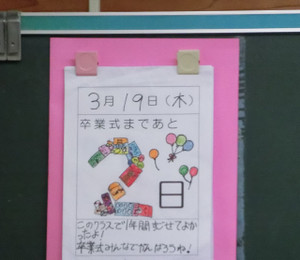 3月19日(木)
卒業式まであと
2日
このクラスで1年間すごせてよか
ったよ!
卒業式みんなでがんばろうね!